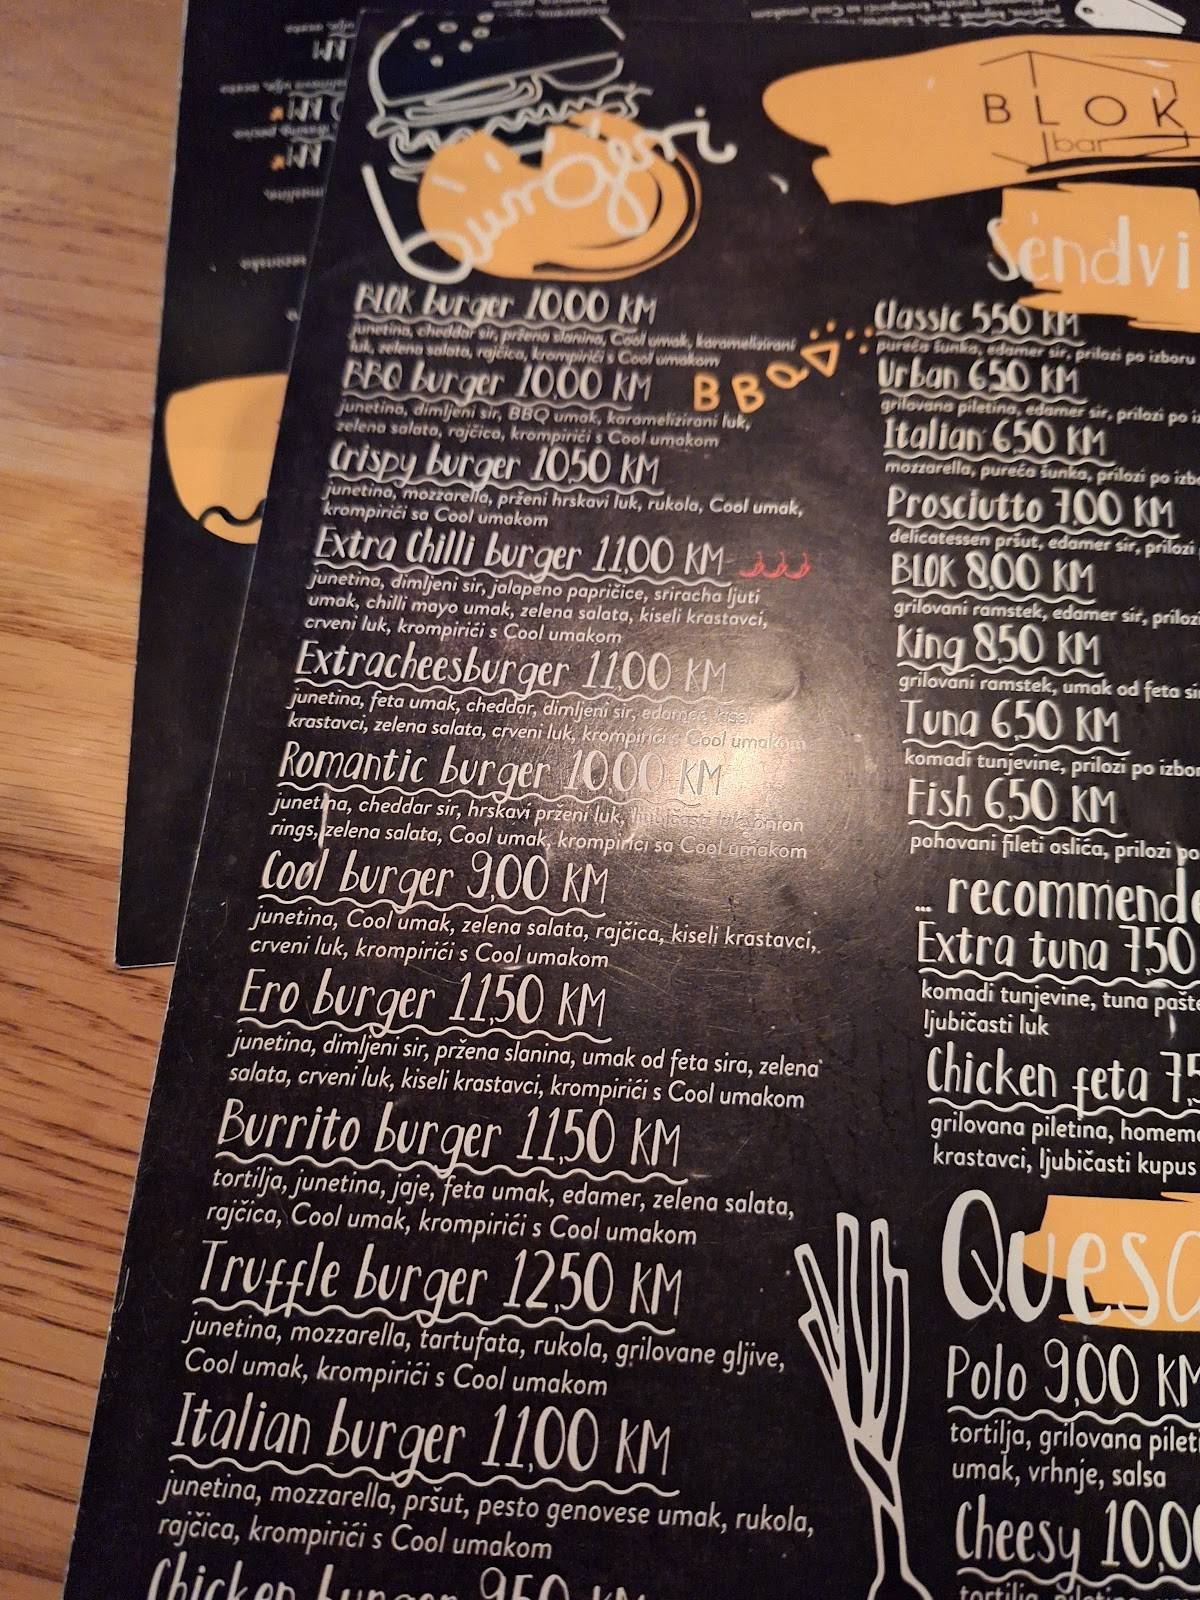 burgeri
BLOK burger 10,00 KM
junetina, cheddar sir, pržena slanina, Cool umak, karamelizirani
luk, zelena salata, rajčica, krompirići s Cool umakom
BBQ burger 10,00 KM
junetina, dimljeni sir, BBQ umak, karamelizirani luk,
zelena salata, rajčica, krompirići s Cool umakom
BBQ
Crispy burger 10,50 KM
junetina, mozzarella, prženi hrskavi luk, rukola, Cool umak,
krompirići sa Cool umakom
Extra Chilli burger 11,00 KM
junetina, dimljeni sir, jalapeno papričice, sriracha ljuti
umak, chilli mayo umak, zelena salata, kiseli krastavci,
crveni luk, krompirići s Cool umakom
Extracheesburger 11,00 KM
junetina, feta umak, cheddar, dimljeni sir, edamer, kiseli
krastavci, zelena salata, crveni luk, krompirići s Cool umakom
Romantic burger 10,00 KM
junetina, cheddar sir, hrskavi prženi luk, ljubičasti luk, onion
rings, zelena salata, Cool umak, krompirići sa Cool umakom
Cool burger 9,00 KM
junetina, Cool umak, zelena salata, rajčica, kiseli krastavci,
crveni luk, krompirići s Cool umakom
Ero burger 11,50 KM
junetina, dimljeni sir, pržena slanina, umak od feta sira, zelena
salata, crveni luk, kiseli krastavci, krompirići s Cool umakom
Burrito burger 11,50 KM
tortilja, junetina, jaje, feta umak, edamer, zelena salata,
rajčica, Cool umak, krompirići s Cool umakom
Truffle burger 12,50 KM
junetina, mozzarella, tartufata, rukola, grilovane gljive,
Cool umak, krompirići s Cool umakom
Italian burger 11,00 KM
junetina, mozzarella, pršut, pesto genovese umak, rukola,
rajčica, krompirići s Cool umakom
Chicken burger 9,50 KM
BLOK
bar
Sendvi
Classic 5,50 KM
pureća šunka, edamer sir, prilozi po izboru
Urban 6,50 KM
grilovana piletina, edamer sir, prilozi po
Italian 6,50 KM
mozzarella, pureća šunka, prilozi po izbo
Prosciutto 7,00 KM
delicatessen pršut, edamer sir, prilozi
BLOK 8,00 KM
grilovani ramstek, edamer sir, priloz
King 8,50 KM
grilovani ramstek, umak od feta si
Tuna 6,50 KM
komadi tunjevine, prilozi po izbor
Fish 6,50 KM
pohovani fileti oslića, prilozi po
... recommende
Extra tuna 7,50
komadi tunjevine, tuna pašte
ljubičasti luk
Chicken feta 7,5
grilovana piletina, homem
krastavci, ljubičasti kupus
Quesa
Polo 9,00 KM
tortilja, grilovana pileti
umak, vrhnje, salsa
Cheesy 10,00